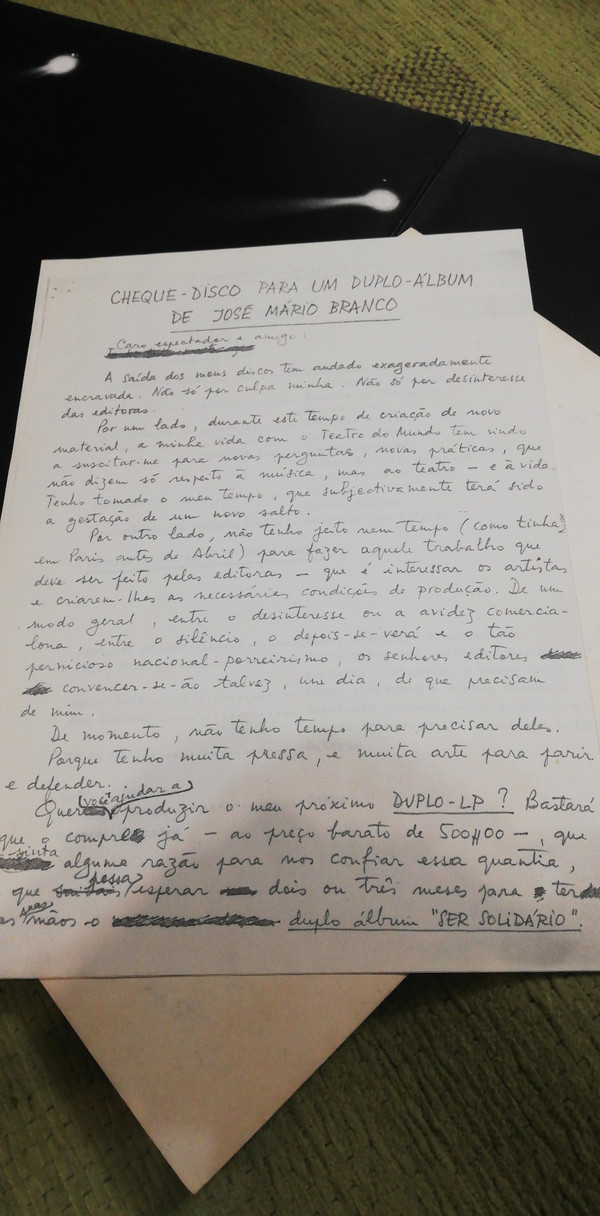 CHEQUE-DISCO PARA UM DUPLO-ÁLBUM
DE JOSÉ MÁRIO BRANCO
Caro espectador e amigo:
A saída dos meus discos tem andado exageradamente
encravada. Não só por culpa minha. Não só por desinteresse
das editoras.
Por um lado, durante este tempo de criação de novo
material, a minha vida com o Teatro do Mundo tem vindo
a suscitar-me para novas perguntas, novas práticas, que
não dizem só respeito à música, mas ao teatro - e à vida.
Tenho tomado o meu tempo, que subjectivamente terá sido
a gestação de um novo salto.
Por outro lado, não tenho jeito nem tempo (como tinha
em Paris antes de Abril) para fazer aquele trabalho que
deve ser feito pelas editoras - que é interessar os artistas
e criarem-lhes as necessárias condições de produção. De um
modo geral, entre o desinteresse ou a avidez comercia-
lona, entre o silêncio, o depois-se-verá e o tão
pernicioso nacional-porreirismo, os senhores editores
convencer-se-ão talvez, um dia, de que precisam
de mim.
De momento, não tenho tempo para precisar deles.
Porque tenho muita pressa, e muita arte para parir
e defender.
Quer você ajudar a produzir o meu próximo DUPLO-LP? Bastará
que o compre já - ao preço barato de 500$00 -, que
sinta alguma razão para nos confiar essa quantia,
que possa esperar dois ou três meses para ter
suas mãos o duplo álbum "SER SOLIDÁRIO".